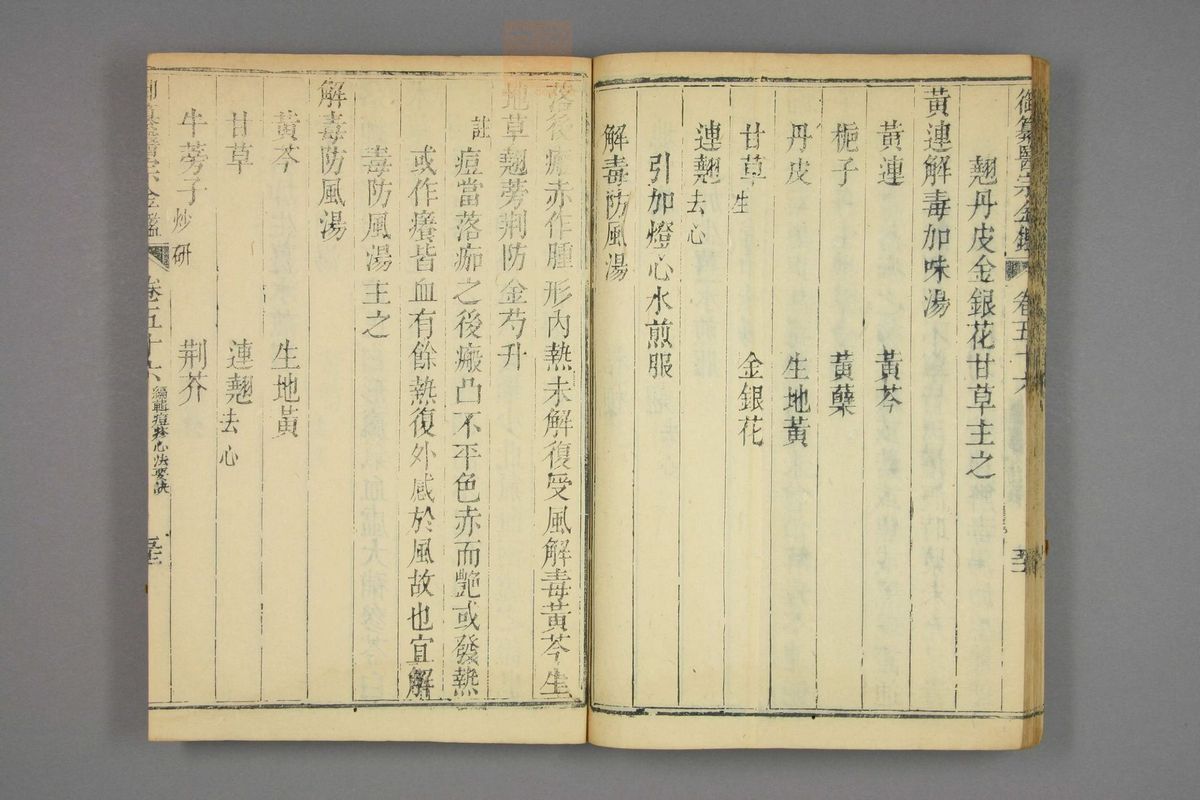 御纂醫宗金鑑 卷五十六
翹丹皮金銀花甘草主之
黃連解毒加味湯
黃連 黃芩
梔子 黃蘗
丹皮 生地黃
甘草生 金銀花
連翹去心
引加燈心水煎服
解毒防風湯
落後瘢赤作腫形內熱未解復受風解毒黃芩生
地草翹蒡荆防金芍升
註痘當落痂之後瘢凸不平色赤而艶或發熱
或作癢皆血有餘熱復外感於風故也宜解
毒防風湯主之
解毒防風湯
黃芩 生地黃
甘草 連翹去心
牛蒡子炒研 荆芥
醫宗金鑑 卷五十六 編輯痘疹心法要訣